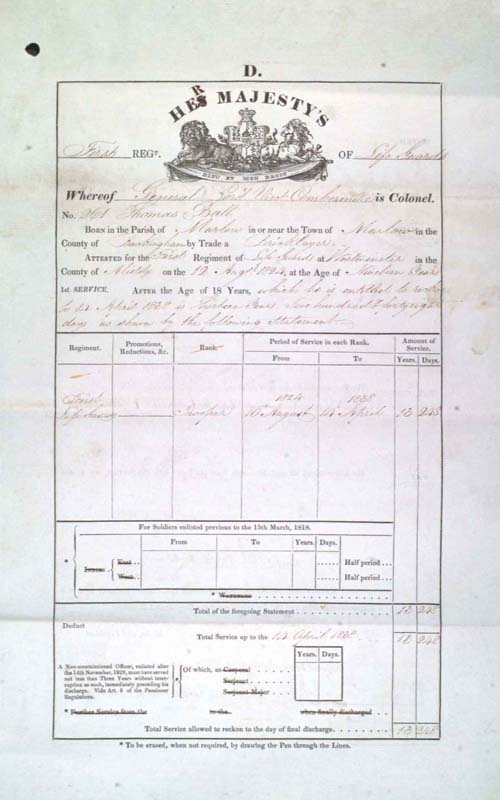 D.
HER MAJESTY'S
DIEU ET MON DROIT
First REGT. OF Life Guards
Whereof General Lord Visct Combermere is Colonel.
No. 261 Thomas Ball
BORN in the Parish of Marlow in or near the Town of Marlow in the
County of Buckingham by Trade a Bricklayer
ATTESTED for the First Regiment of Life Guards at Westminster in the
County of Middx on the 12 Augt 1824, at the Age of Nineteen Years
1st. SERVICE. AFTER the Age of 18 Years, which he is entitled to reckon
to 14 April 1838 is Thirteen Years Two hundred & forty eight
days as shewn by the following Statement.
Regiment. Promotions, Reductions, &c. Rank. Period of Service in each Rank. Amount of Service.
From To Years. Days.
First 1824 1838
Life Guards Trooper 10 August 14 April 13 248
For Soldiers enlisted previous to the 15th March, 1818.
From To Years. Days.
* Indies East .. Half period ...
West .. Half period ...
* Waterloo
Total of the foregoing Statement 13 248
Deduct
Total Service up to the 14 April 1838 13 248
Years. Days.
A Non-commissioned Officer, enlisted after
the 14th November, 1829, must have served
not less than Three Years without inter-
ruption as such, immediately preceding his
discharge. Vide Art. 6 of the Pensioner
Regulations.
* Of which, as Corporal
Serjeant
Serjeant-Major
* Further Service from the to the when finally discharged
Total Service allowed to reckon to the day of final discharge 13 248
* To be erased, when not required, by drawing the Pen through the Lines.